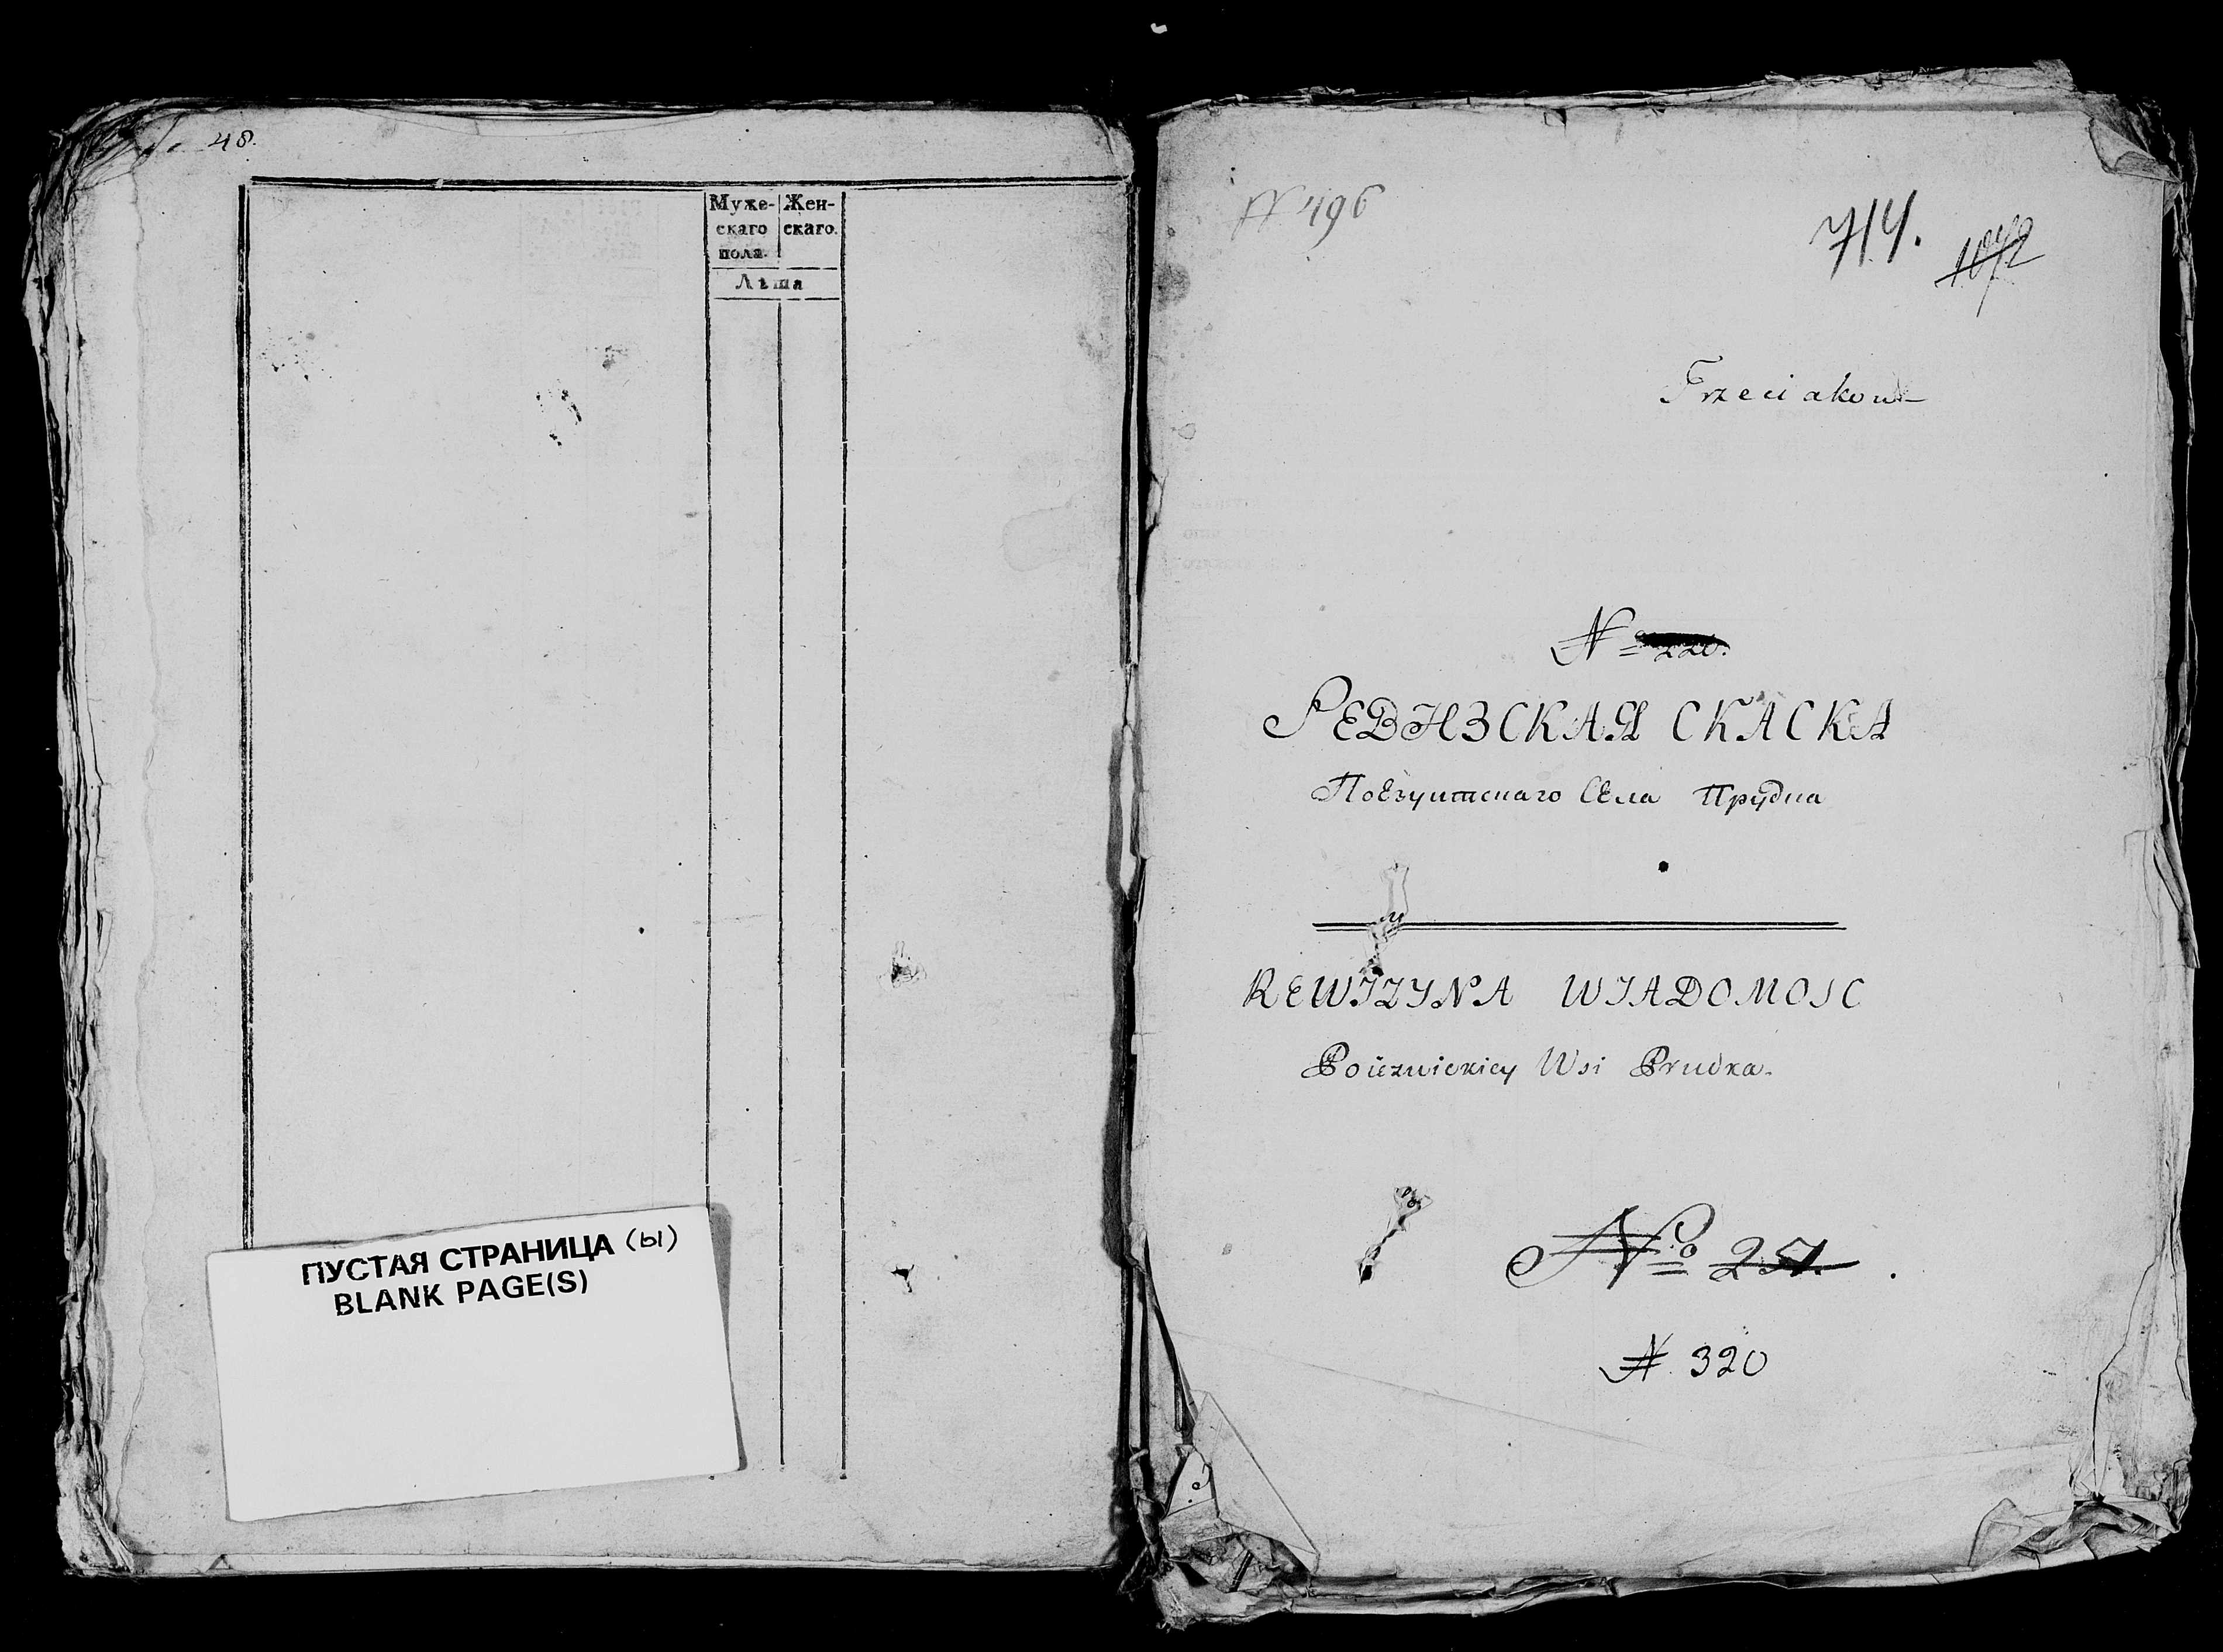 48.
Муже-
скаго
пола.
Жен-
скаго.
Лѣта
ПУСТАЯ СТРАНИЦА (ы)
BLANK PAGE(S)
N 496
714.
1072
Trzeciakow
N 220.
РЕВИЗСКАЯ СКАСКА
ПоЕзуитскаго СЕла Прудка
REWIZYNA WIADOMOSC
Poiezuickiey Wsi Prudka.
No 251.
N. 320